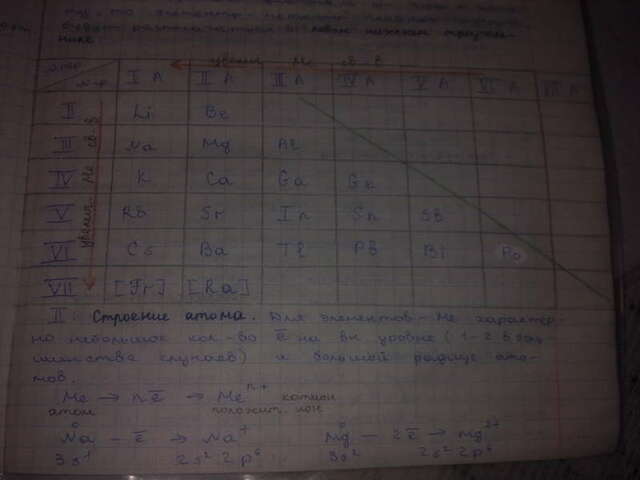 будут располагаться в левом нижнем треуголь-
нике:
увелич. Ме св-в
№ гр I A II A III A IV A V A VI A VII A
II Li Be
III Na Mg Al
IV K Ca Ga Ge
V Rb Sr In Sn Sb
VI Cs Ba Tl Pb Bi Po
VII [Fr] [Ra]
увелич. Ме св-в
II. Строение атома. Для элементов - Ме характер-
но небольшое кол-во ē на вн. уровне (1-2 в боль-
шинстве случаев) и большой радиус ато-
мов.
Me → nē → Meⁿ⁺ катион
атом положит. ион
Na⁰ - ē → Na⁺ Mg⁰ - 2ē → Mg²⁺
3s¹ 2s² 2p⁶ 3s² 2s² 2p⁶